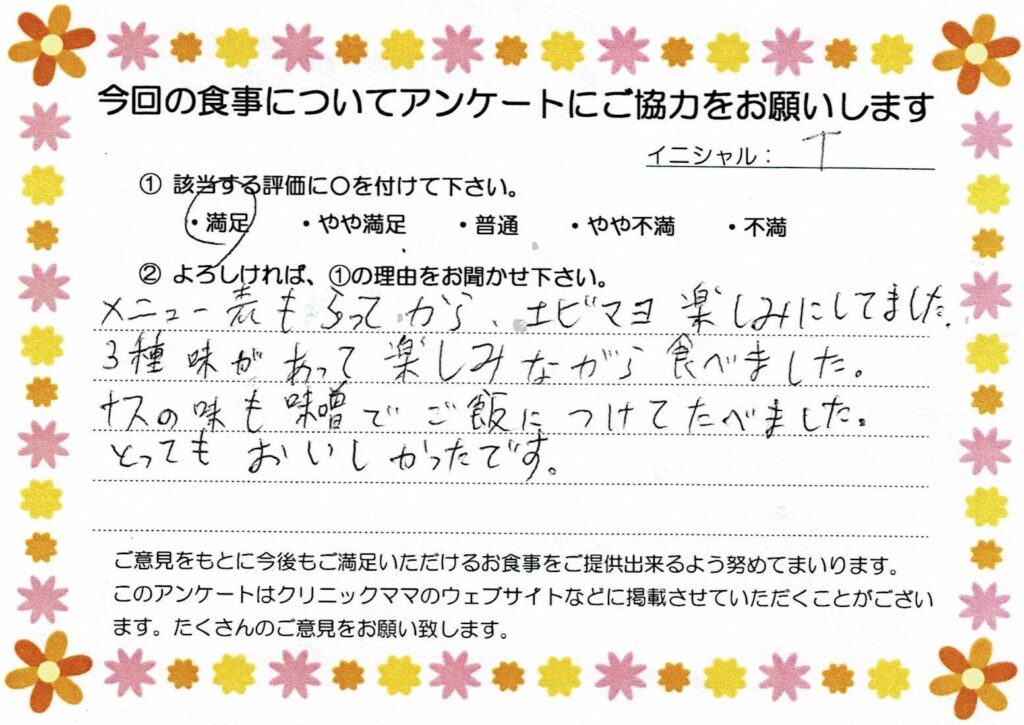 今回の食事についてアンケートにご協力をお願いします
イニシャル： T
① 該当する評価に○を付けて下さい。
・満足 ・やや満足 ・普通 ・やや不満 ・不満
② よろしければ、①の理由をお聞かせ下さい。
メニュー表もらってから、エビマヨ 楽しみにしてました。
3種味があって楽しみながら食べました。
ナスの味も味噌でご飯につけてたべました。
とってもおいしかったです。
ご意見をもとに今後もご満足いただけるお食事をご提供出来るよう努めてまいります。
このアンケートはクリニックママのウェブサイトなどに掲載させていただくことがござい
ます。たくさんのご意見をお願い致します。